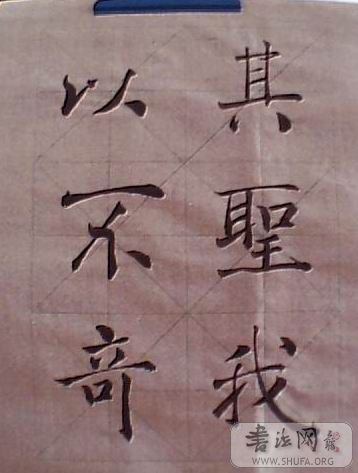 其聖我
以不奇
書法网
WWW.SHUFA.ORG